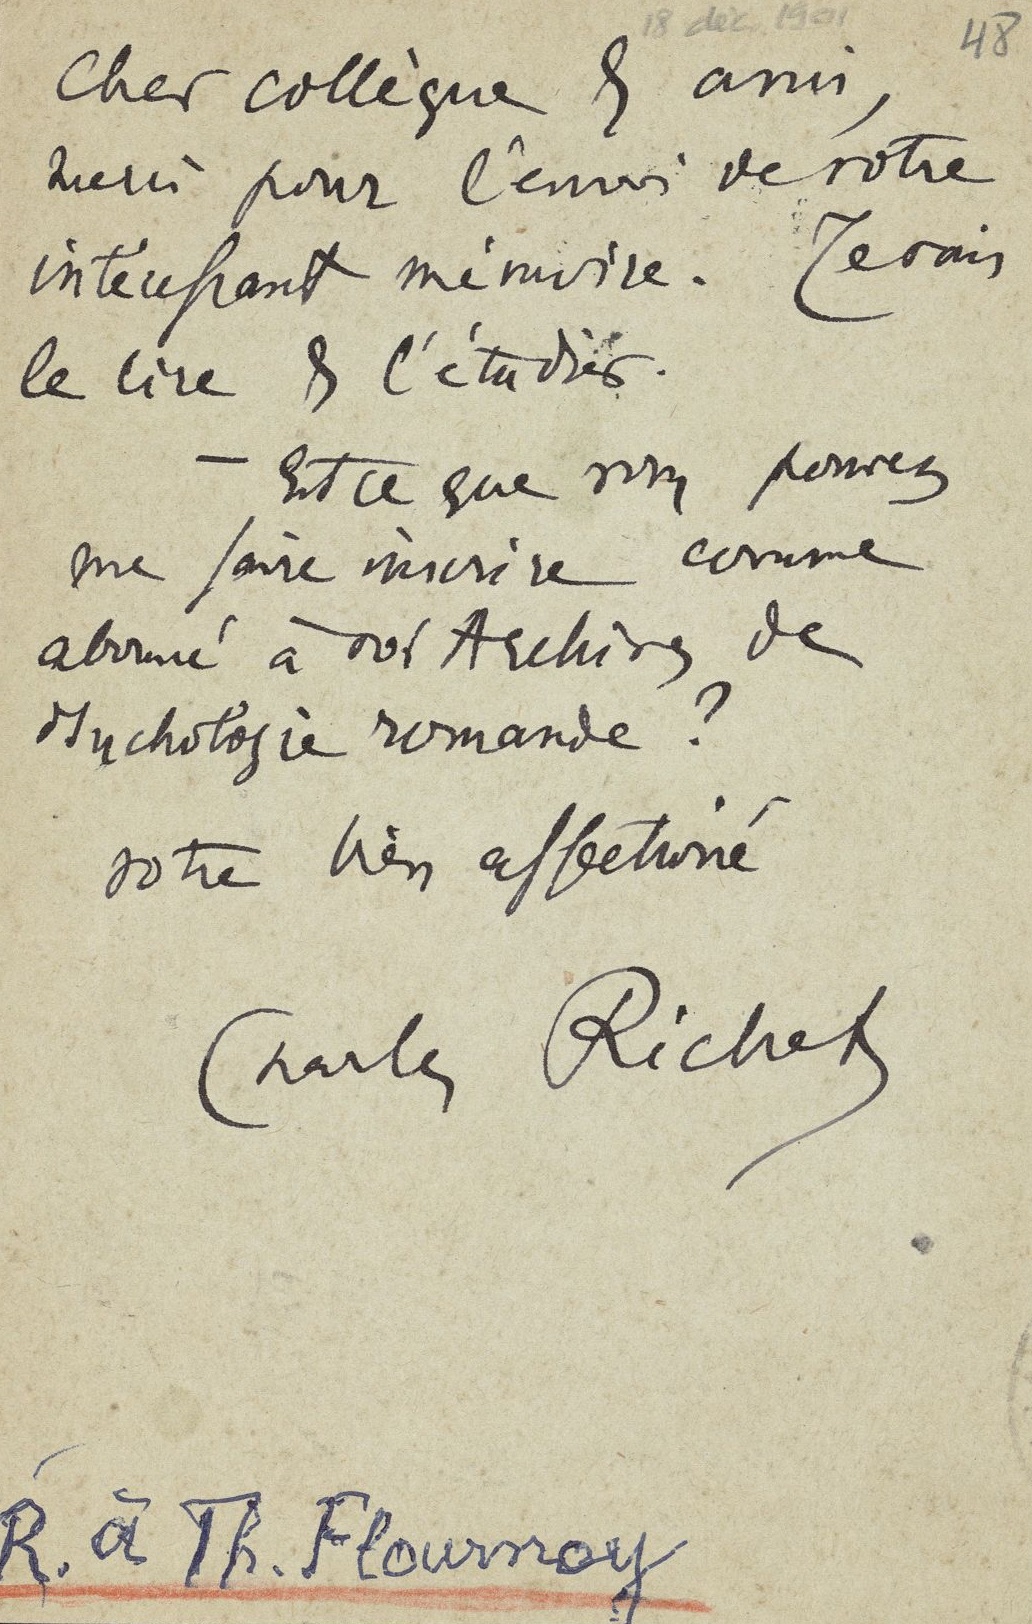 18 déc. 1901
48
Cher collègue & ami,
merci pour l'envoi de votre
intéressant mémoire. Je vais
le lire & l'étudier.
— Est ce que vous pouvez
me faire inscrire comme
abonné à vos Archives de
Psychologie romande ?
votre bien affectionné
Charles Richet
R. à Th. Flournoy